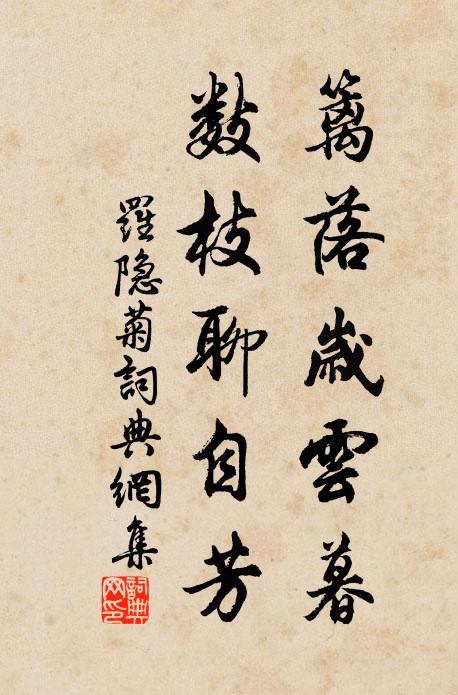 籬落歲雲暮
數枝聊自芳
羅隐菊詞典網集
詞典网印